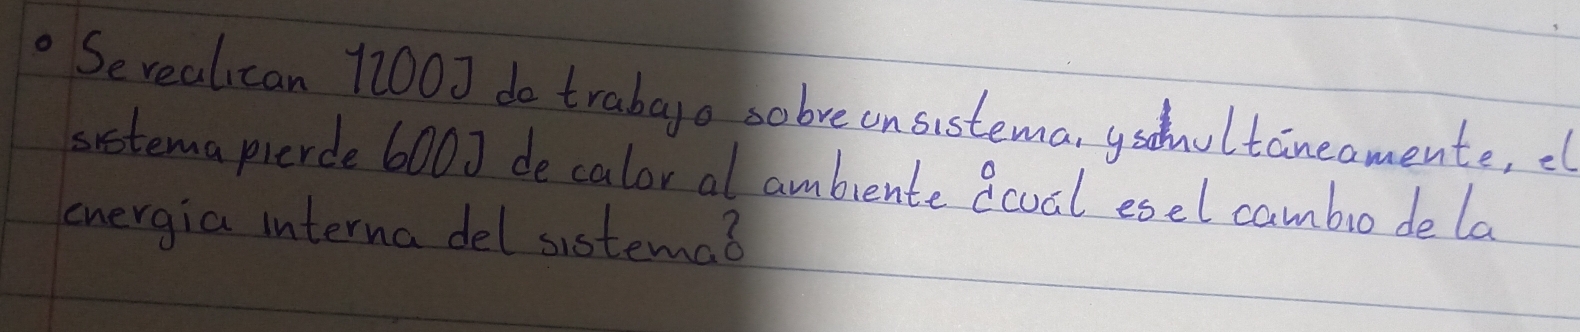 • Se realizan 1200J de trabajo sobre un sistema, y simultáneamente, el
sistema pierde 600J de calor al ambiente ¿cuál es el cambio de la
energia interna del sistema?